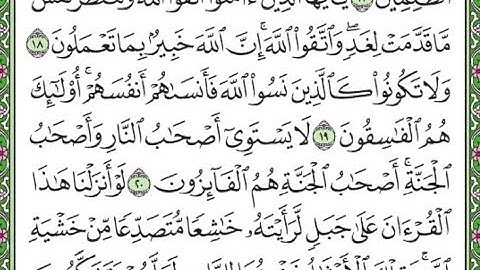 ٱلظَّـٰلِمِينَ ١٧ يَـٰٓأَيُّهَا ٱلَّذِينَ ءَامَنُوا۟ ٱتَّقُوا۟ ٱللَّهَ وَلْتَنظُرْ نَفْسٌ
مَّا قَدَّمَتْ لِغَدٍ ۖ وَٱتَّقُوا۟ ٱللَّهَ ۚ إِنَّ ٱللَّهَ خَبِيرٌۢ بِمَا تَعْمَلُونَ ١٨
وَلَا تَكُونُوا۟ كَٱلَّذِينَ نَسُوا۟ ٱللَّهَ فَأَنسَىٰهُمْ أَنفُسَهُمْ ۚ أُو۟لَـٰٓئِكَ
هُمُ ٱلْفَـٰسِقُونَ ١٩ لَا يَسْتَوِىٓ أَصْحَـٰبُ ٱلنَّارِ وَأَصْحَـٰبُ
ٱلْجَنَّةِ ۚ أَصْحَـٰبُ ٱلْجَنَّةِ هُمُ ٱلْفَآئِزُونَ ٢٠ لَوْ أَنزَلْنَا هَـٰذَا
ٱلْقُرْءَانَ عَلَىٰ جَبَلٍ لَّرَأَيْتَهُۥ خَـٰشِعًا مُّتَصَدِّعًا مِّنْ خَشْيَةِ